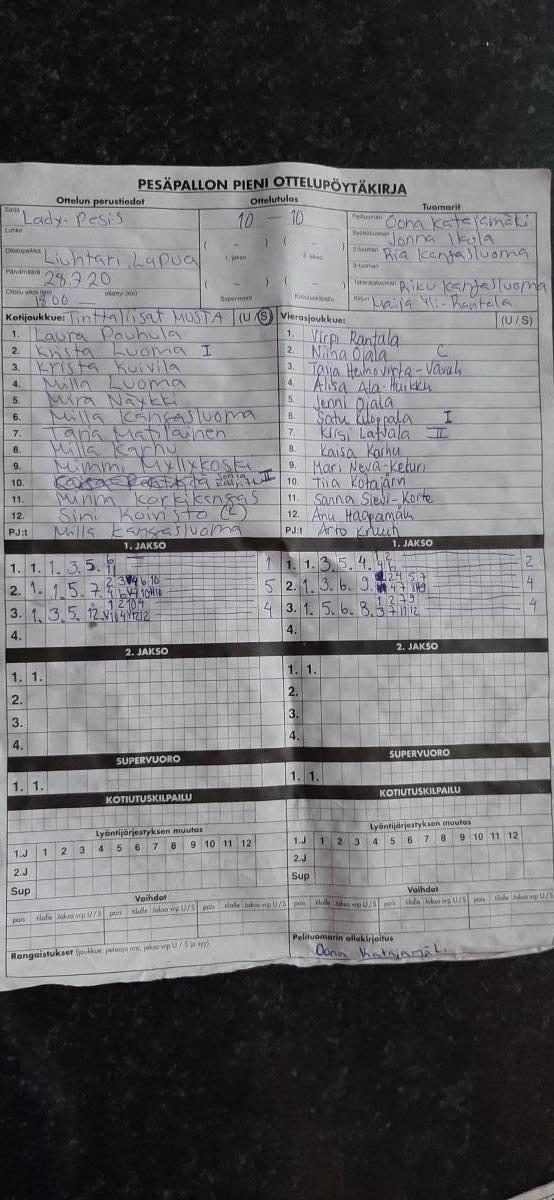 PESÄPALLON PIENI OTTELUPÖYTÄKIRJA
Ottelun perustiedot Ottelutulos Tuomarit
Sarja Lady-Pesis
Lohko
Ottelupaikka Liuhtari, Lapua
Päivämäärä 28.7.20
10 - 10
( - ) ( - )
1. jakso 2. jakso
( - ) ( - )
Supervuoro Kotiutuskilpailu
Pelituomari Oona Katajamäki
Syöttötuomari Jonna Ikola
2-tuomari Ria Kangasluoma
3-tuomari
Takarajatuomari Riku Kangasluoma
Kirjuri Maija Yli-Rantala
Kotijoukkue: Tinttaliisat MUSTA (U / S)
1. Laura Pouhula
2. Krista Luoma I
3. Krista Kuivila
4. Milla Luoma
5. Mira Näykki
6. Milla Kangasluoma
7. Tana Matilainen
8. Milla Karhu
9. Mimmi Myllykoski
10. II
11. Minna Korkikangas
12. Sini Koivisto
PJ:t Milla Kangasluoma
Vierasjoukkue: (U / S)
1. Virpi Rantala
2. Niina Ojala C
3. Taija Heinovirta-Vavuli
4. Alisa Ala-Huikku
5. Jenni Ojala
6. Satu Kiloppala I
7. Kirsi Latvala II
8. Kaisa Karhu
9. Mari Neva-Keturi
10. Tiia Kotajärvi
11. Sanna Sievi-Korte
12. Anu Haapamäki
PJ:t Arto
1. JAKSO
1. 1. 1. 3. 5. 1
2. 1. 1. 5. 7. 5
3. 1. 3. 5. 12. 4
4.
2. JAKSO
1. 1.
2.
3.
4.
SUPERVUORO
1. 1.
KOTIUTUSKILPAILU
Lyöntijärjestyksen muutos
1.J 1 2 3 4 5 6 7 8 9 10 11 12
2.J
Sup
Vaihdot
pois tilalle Jakso vrp U / S pois tilalle Jakso vrp U / S pois tilalle Jakso vrp U / S
Rangaistukset (joukkue, pelaaja nro, jakso vrp U / S ja syy)
1. JAKSO
1. 1. 3. 5. 4. 2
2. 1. 3. 6. 9. 4
3. 1. 5. 6. 8. 4
4.
2. JAKSO
1. 1.
2.
3.
4.
SUPERVUORO
1. 1.
KOTIUTUSKILPAILU
Lyöntijärjestyksen muutos
1.J 1 2 3 4 5 6 7 8 9 10 11 12
2.J
Sup
Vaihdot
pois tilalle Jakso vrp U / S pois tilalle Jakso vrp U / S pois tilalle Jakso vrp U / S
Pelituomarin allekirjoitus
Oona Katajamäki